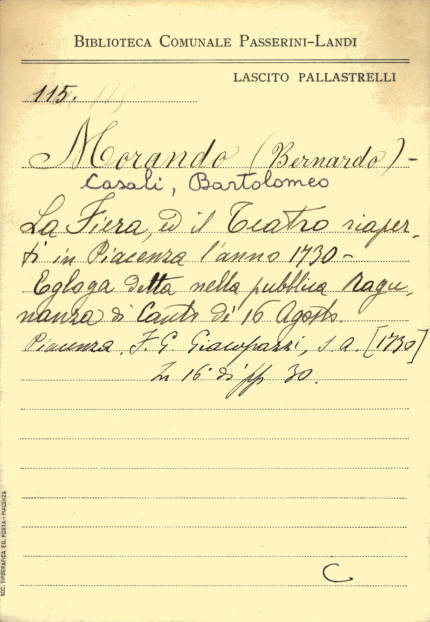 BIBLIOTECA COMUNALE PASSERINI-LANDI
LASCITO PALLASTRELLI
115.
Morando (Bernardo) -
Casali, Bartolomeo
La Fiera, ed il Teatro riaper-
ti in Piacenza l'anno 1730 -
Egloga detta nella pubblica Ragu-
nanza di Canto di 16 Agosto.
Piacenza. F. G. Giacopazzi, s. a. [1730]
In 16° di pp. 30.
C
SOC. TIPOGRAFICA ED. PORTA - PIACENZA